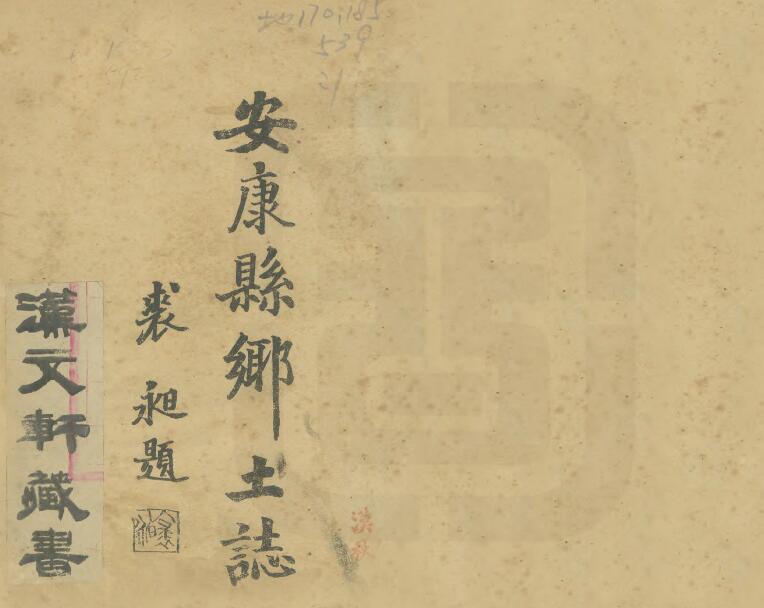 地170:185
539
安康縣鄉土誌
裘昶題
漢文軒藏書